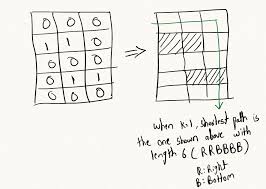 0 0 0
1 1 0
0 0 0
0 1 1
0 0 0
when K=1, shortest path is
the one shown above with
length 6 (RRBBBB)
R: Right
B: Bottom